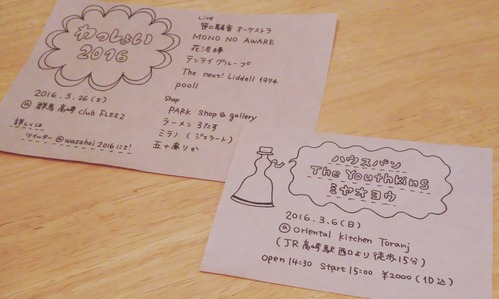 わっしょい
2016
2016.3.26(土)
@ 群馬 高崎 club FLEEZ
詳しくは
ツイッター @wasshoi2016にて!
Live
笹口騒音オーケストラ
MONO NO AWARE
花池棒
テンテイグループ
The next! Liddell 1974
pooll
Shop
PARK Shop & gallery
ラーメン ろたす
ミラノ (ジェラート)
五十嵐りか
ハウスバン
The Youthkins
ミヤオヨウ
2016.3.6(日)
@ Oriental Kitchen Toranj
(JR高崎駅西口より徒歩15分)
Open 14:30 Start 15:00 ¥2000 (1D込)